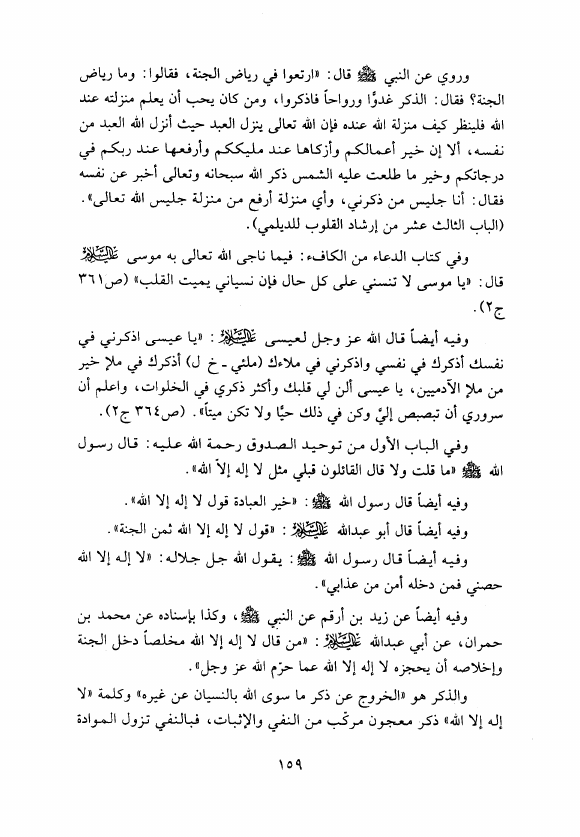 وروي عن النبي ﷺ قال: «ارتعوا في رياض الجنة، فقالوا: وما رياض
الجنة؟ فقال: الذكر غدوًّا ورواحاً فاذكروا، ومن كان يحب أن يعلم منزلته عند
الله فلينظر كيف منزلة الله عنده فإن الله تعالى ينزل العبد حيث أنزل الله العبد من
نفسه، ألا إن خير أعمالكم وأزكاها عند مليككم وأرفعها عند ربكم في
درجاتكم وخير ما طلعت عليه الشمس ذكر الله سبحانه وتعالى أخبر عن نفسه
فقال: أنا جليس من ذكرني، وأي منزلة أرفع من منزلة جليس الله تعالى».
(الباب الثالث عشر من إرشاد القلوب للديلمي).
وفي كتاب الدعاء من الكافء: فيما ناجى الله تعالى به موسى عليه السلام
قال: «يا موسى لا تنسني على كل حال فإن نسياني يميت القلب» (ص٣٦١
ج٢).
وفيه أيضاً قال الله عز وجل لعيسى عليه السلام: «يا عيسى اذكرني في
نفسك أذكرك في نفسي واذكرني في ملاءك (ملئي ـ خ ل) أذكرك في ملإ خير
من ملإ الآدميين، يا عيسى ألن لي قلبك وأكثر ذكري في الخلوات، واعلم أن
سروري أن تبصبص إليَّ وكن في ذلك حيًّا ولا تكن ميتاً». (ص٣٦٤ ج٢).
وفي الباب الأول من توحيد الصدوق رحمة الله عليه: قال رسول
الله ﷺ «ما قلت ولا قال القائلون قبلي مثل لا إله إلاّ الله».
وفيه أيضاً قال رسول الله ﷺ: «خير العبادة قول لا إله إلا الله».
وفيه أيضاً قال أبو عبدالله عليه السلام: «قول لا إله إلا الله ثمن الجنة».
وفيه أيضاً قال رسول الله ﷺ: يقول الله جل جلاله: «لا إله إلا الله
حصني فمن دخله أمن من عذابي».
وفيه أيضاً عن زيد بن أرقم عن النبي ﷺ، وكذا بإسناده عن محمد بن
حمران، عن أبي عبدالله عليه السلام: «من قال لا إله إلا الله مخلصاً دخل الجنة
وإخلاصه أن يحجزه لا إله إلا الله عما حرّم الله عز وجل».
والذكر هو «الخروج عن ذكر ما سوى الله بالنسيان عن غيره» وكلمة «لا
إله إلا الله» ذكر معجون مركّب من النفي والإثبات، فبالنفي تزول الموادة
١٥٩